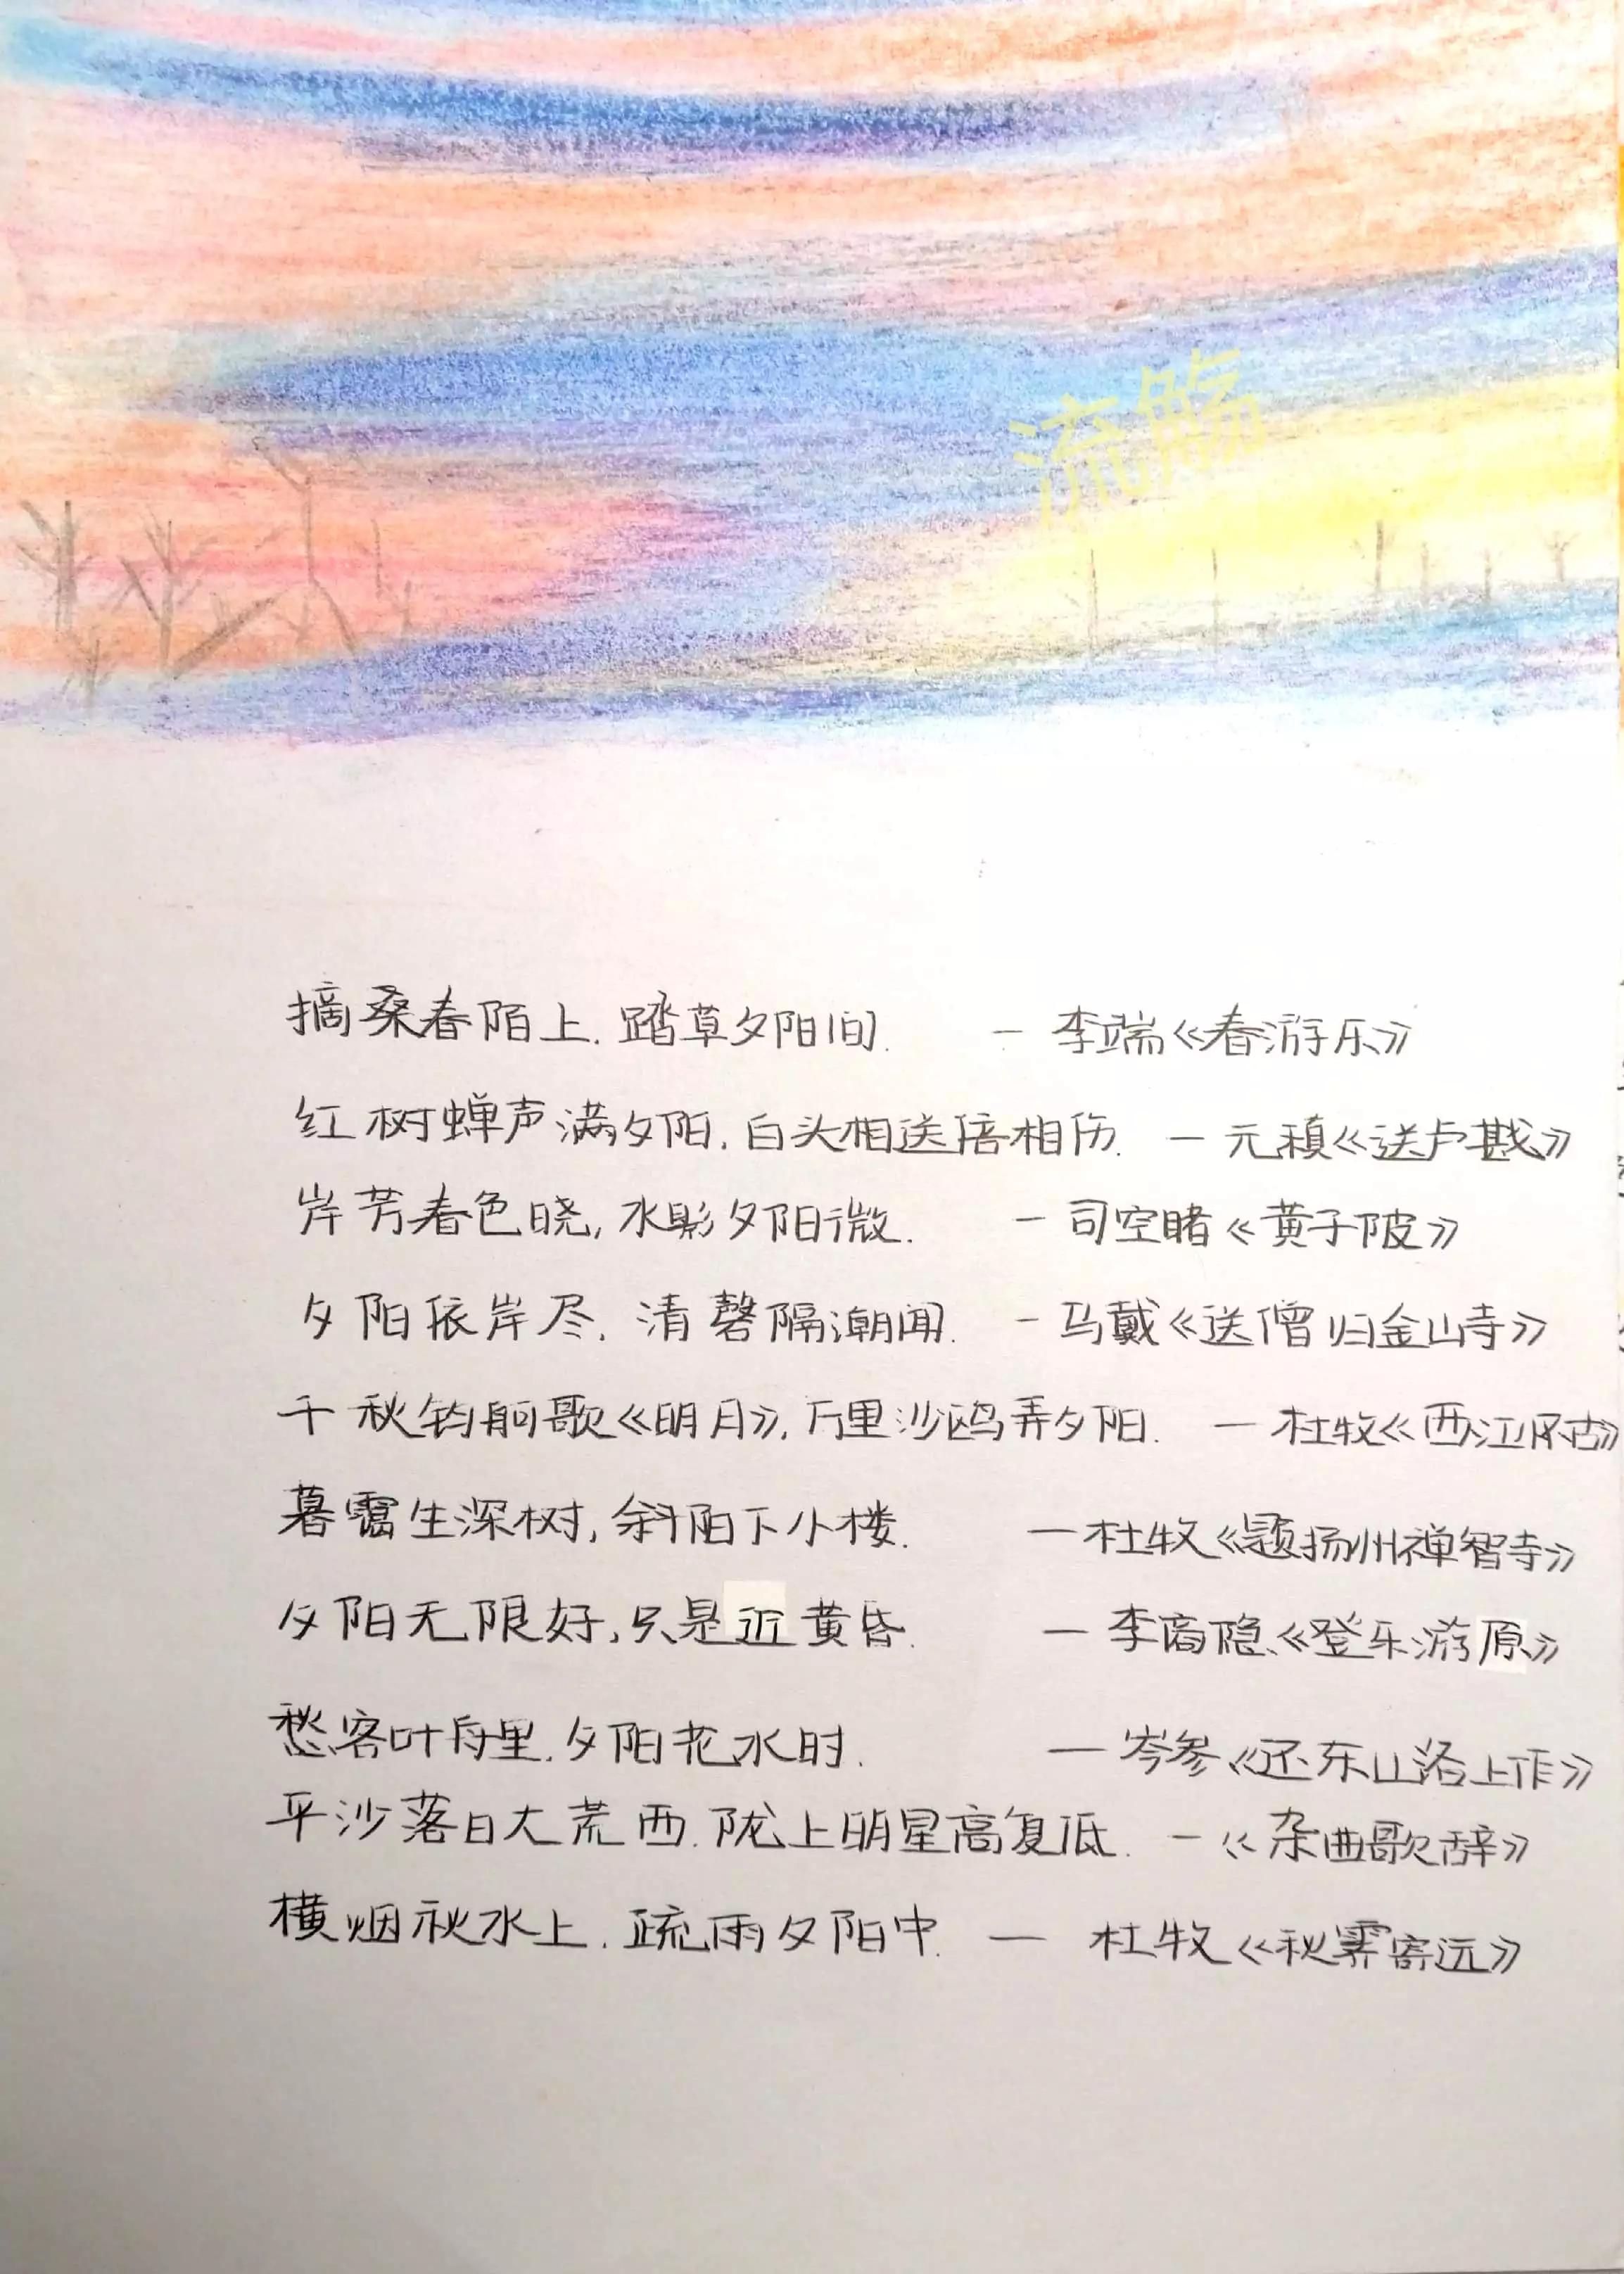 流觞
摘桑春陌上.踏草夕阳间. — 李端《春游乐》
红树蝉声满夕阳,白头相送倍相伤. — 元稹《送卢戡》
岸芳春色晓,水影夕阳微. — 司空曙《黄子陂》
夕阳依岸尽,清磬隔潮闻. — 马戴《送僧归金山寺》
千秋钓舸歌《明月》,万里沙鸥弄夕阳. — 杜牧《西江怀古》
暮霭生深树,斜阳下小楼. — 杜牧《题扬州禅智寺》
夕阳无限好,只是近黄昏. — 李商隐《登乐游原》
愁客叶舟里.夕阳花水时. — 岑参《还东山洛上作》
平沙落日大荒西.陇上明星高复低. — 《杂曲歌辞》
横烟秋水上.疏雨夕阳中. — 杜牧《秋霁寄远》